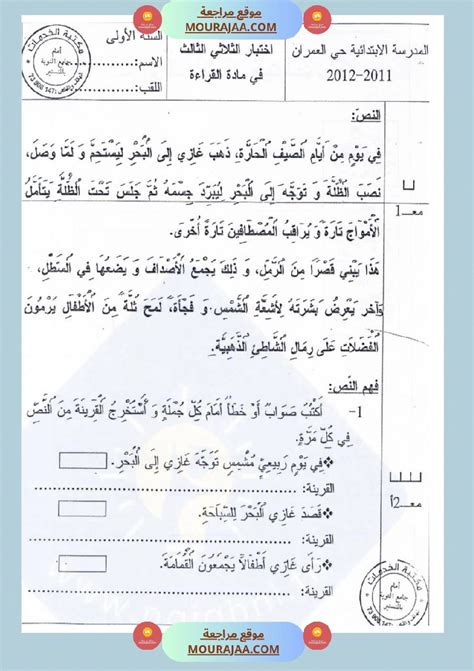 موقع مراجعة
MOURAJAA.COM
المدرسة الابتدائية حي العمران
2012-2011
اختبار الثلاثي الثالث
في مادة القراءة
السنة الأولى
الاسم:
اللقب:
مكتبة الخدمات
أمام
النص:
فِي يَوْمٍ مِنْ أَيَّامِ الصَّيْفِ الْحَارَّةِ، ذَهَبَ غَازِي إِلَى الْبَحْرِ لِيَسْتَحِمَّ وَ لَمَّا وَصَلَ،
نَصَبَ الظُّلَّةَ وَ تَوَجَّهَ إِلَى الْبَحْرِ لِيُبَرِّدَ جِسْمَهُ ثُمَّ جَلَسَ تَحْتَ الظُّلَّةِ يَتَأَمَّلُ
الْأَمْوَاجَ تَارَةً وَ يُرَاقِبُ الْمُصْطَافِينَ تَارَةً أُخْرَى.
هَذَا يَبْنِي قَصْرًا مِنَ الرَّمْلِ، وَ ذَلِكَ يَجْمَعُ الْأَصْدَافَ وَ يَضَعُهَا فِي السَّطْلِ،
وَآخر يَعْرِضُ بَشَرَتَهُ لِأَشِعَّةِ الشَّمْسِ وَ فَجْأَةً، لَمَحَ ثُلَّةً مِنَ الْأَطْفَالِ يَرْمُونَ
الْفَضَلَاتِ عَلَى رِمَالِ الشَّاطِئِ الذَّهَبِيَّةِ.
معـ1
فهم النص:
1- أَكْتُبُ صَوَابٌ أَوْ خَطَأٌ أَمَامَ كُلِّ جُمْلَةٍ وَ أَسْتَخْرِجُ الْقَرِينَةَ مِنَ النَّصِّ
فِي كُلِّ مَرَّةٍ.
❖فِي يَوْمٍ رَبِيعِيٍّ مُشْمِسٍ تَوَجَّهَ غَازِي إِلَى الْبَحْرِ.
القرينة: ........................
❖قَصَدَ غَازِي الْبَحْرَ لِلسِّبَاحَةِ.
القرينة: ........................
❖رَأَى غَازِي أَطْفَالًا يَجْمَعُونَ الْقُمَامَةَ.
القرينة: ........................
معـ2أ
مكتبة الخدمات
أمام
موقع مراجعة
MOURAJAA.COM